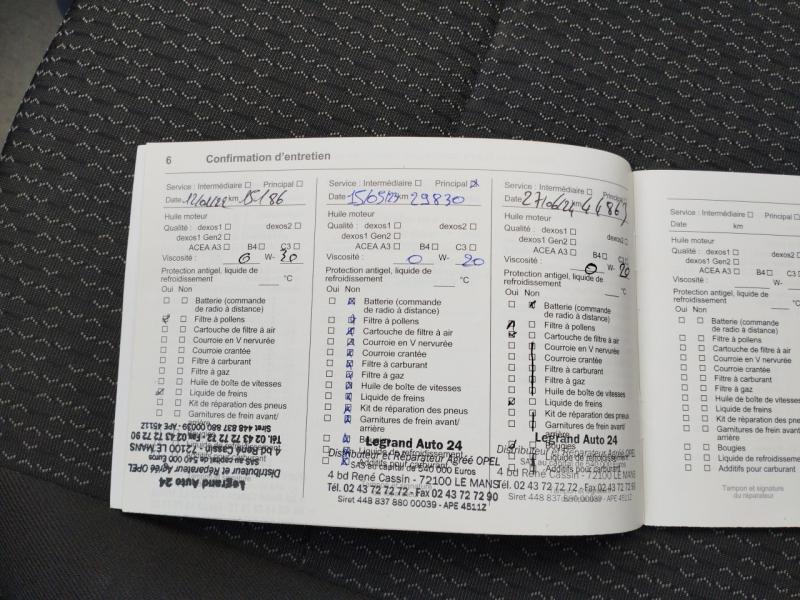 6 Confirmation d'entretien
Service : Intermédiaire Principal
Date 12/01/22 km 15186
Huile moteur
Qualité : dexos1 dexos2
dexos1 Gen2
ACEA A3 B4 C3
Viscosité : 0 W- 20
Protection antigel, liquide de
refroidissement °C
Oui Non
Batterie (commande
de radio à distance)
Filtre à pollens
Cartouche de filtre à air
Courroie en V nervurée
Courroie crantée
Filtre à carburant
Filtre à gaz
Huile de boîte de vitesses
Liquide de freins
Kit de réparation des pneus
Garnitures de frein avant/
arrière
Legrand Auto 24
Distributeur et Réparateur Agréé OPEL
SAS au capital de 540 000 Euros
4 bd René Cassin - 72100 LE MANS
Tél. 02 43 72 72 72 - Fax 02 43 72 72 90
Siret 448 837 880 00039 - APE 4511Z
Service : Intermédiaire Principal
Date 15/05/23 km 29830
Huile moteur
Qualité : dexos1 dexos2
dexos1 Gen2
ACEA A3 B4 C3
Viscosité : 0 W- 20
Protection antigel, liquide de
refroidissement °C
Oui Non
Batterie (commande
de radio à distance)
Filtre à pollens
Cartouche de filtre à air
Courroie en V nervurée
Courroie crantée
Filtre à carburant
Filtre à gaz
Huile de boîte de vitesses
Liquide de freins
Kit de réparation des pneus
Garnitures de frein avant/
arrière
Bougies
Liquide de refroidissement
Additifs pour carburant
Legrand Auto 24
Distributeur et Réparateur Agréé OPEL
SAS au capital de 540 000 Euros
4 bd René Cassin - 72100 LE MANS
Tél. 02 43 72 72 72 - Fax 02 43 72 72 90
Siret 448 837 880 00039 - APE 4511Z
Service : Intermédiaire Principal
Date 27/06/24 km
Huile moteur
Qualité : dexos1 dexos2
dexos1 Gen2
ACEA A3 B4 C3
Viscosité : 0 W- 20
Protection antigel, liquide de
refroidissement °C
Oui Non
Batterie (commande
de radio à distance)
Filtre à pollens
Cartouche de filtre à air
Courroie en V nervurée
Courroie crantée
Filtre à carburant
Filtre à gaz
Huile de boîte de vitesses
Liquide de freins
Kit de réparation des pneus
Garnitures de frein avant/
arrière
Bougies
Liquide de refroidissement
Additifs pour carburant
Legrand Auto 24
Distributeur et Réparateur Agréé OPEL
SAS au capital de 540 000 Euros
4 bd René Cassin - 72100 LE MANS
Tél. 02 43 72 72 72 - Fax 02 43 72 72 90
Siret 448 837 880 00039 - APE 4511Z
Service : Intermédiaire Principal
Date km
Huile moteur
Qualité : dexos1 dexos2
dexos1 Gen2
ACEA A3 B4 C3
Viscosité : W-
Protection antigel, liquide de
refroidissement
Oui Non
Batterie (commande
de radio à distance)
Filtre à pollens
Cartouche de filtre à air
Courroie en V nervurée
Courroie crantée
Filtre à carburant
Filtre à gaz
Huile de boîte de vitesses
Liquide de freins
Kit de réparation des pneus
Garnitures de frein avant/
arrière
Bougies
Liquide de refroidissement
Additifs pour carburant
Tampon et signature
du réparateur